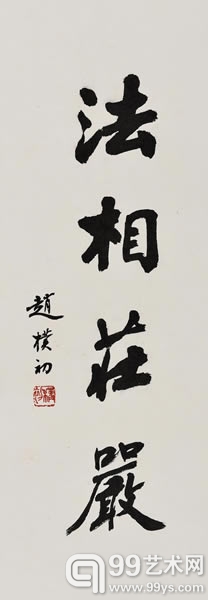 法相莊嚴
趙樸初
99艺术网
www.99ys.com